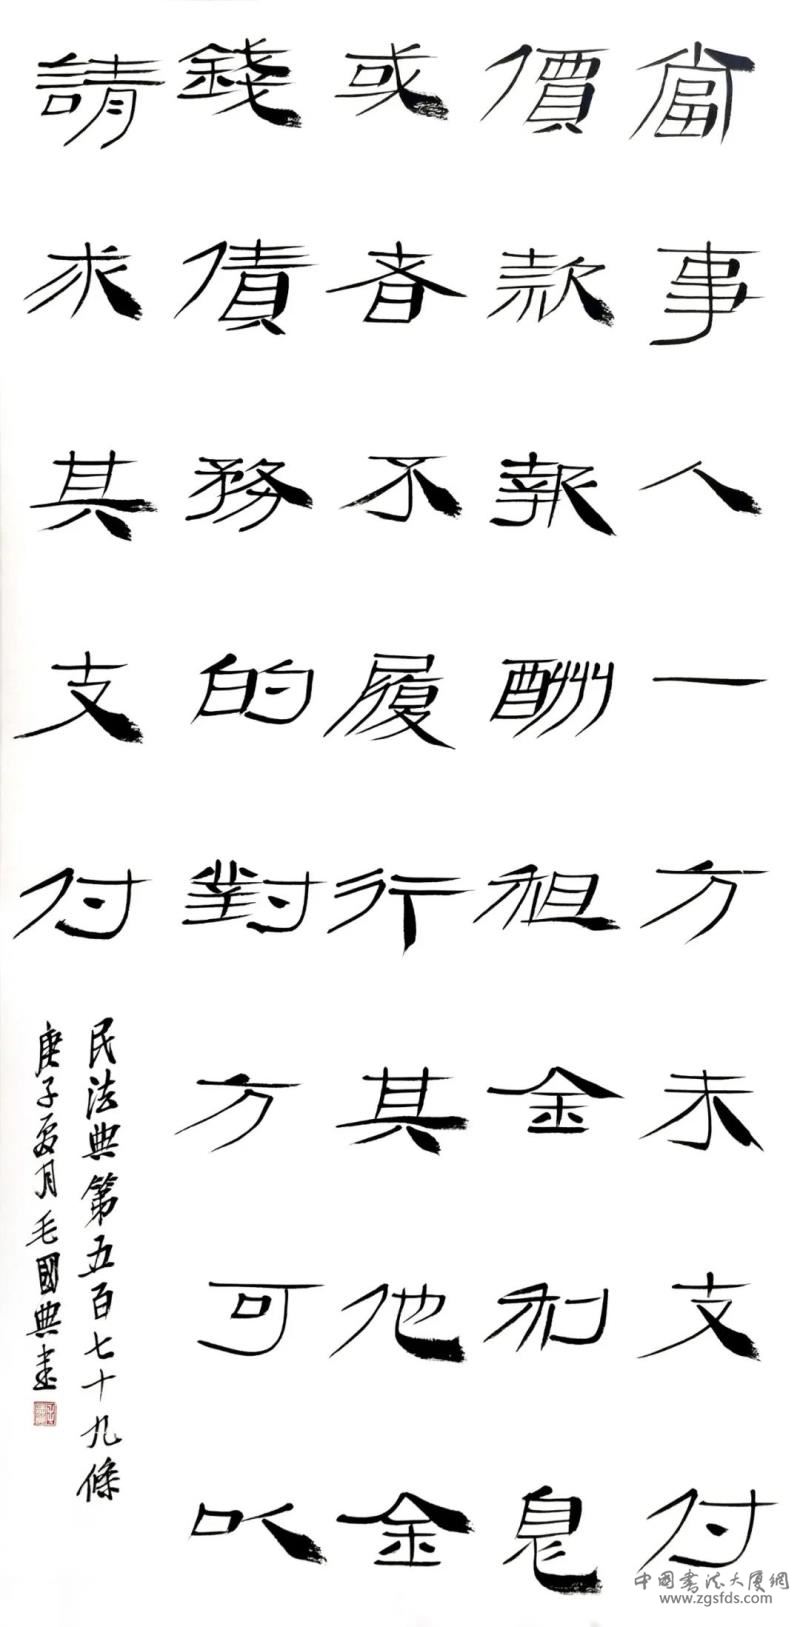 當事人一方未支付
價款報酬租金利息
或者不履行其他金
錢債務的對方可以
請求其支付
民法典第五百七十九條
庚子夏月毛國典書
中国書法大厦網
www.zgsfds.com